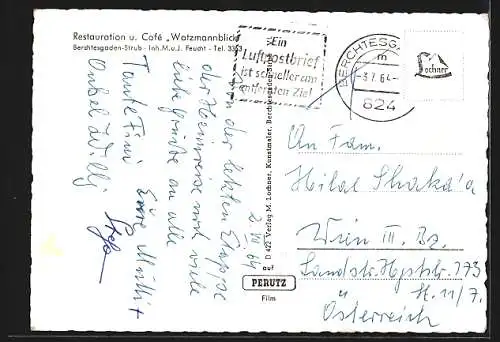 Restauration u. Café „Watzmannblick"
Berchtesgaden-Strub - Inh. M. u. J. Feucht - Tel. 3363
Ein
Luftpostbrief
ist schneller am
entfernten Ziel
BERCHTESGA
m
3.7.64
824
Lochner
Von der letzten Etappe
der Heimreise noch viele
liebe Grüße an alle
Eure Mutti +
Tante Fini
Onkel Willy
2. VII 64
D 422 Verlag M. Lochner, Kunstmaler, Berchtesgaden-Strub
auf
PERUTZ
Film
An Fam.
Wien III. Bz.
Landstr. Hptstr. 173
H. 11/7.
Österreich